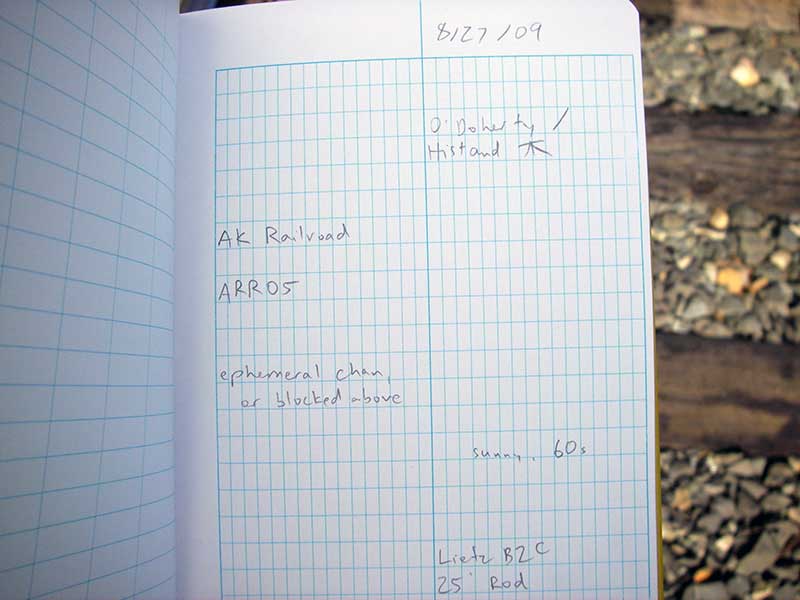 8/27/09
O'Doherty /
Histand ⊼
AK Railroad
ARR05
ephemeral chan,
or blocked above
sunny, 60s
Lietz B2C
25' Rod